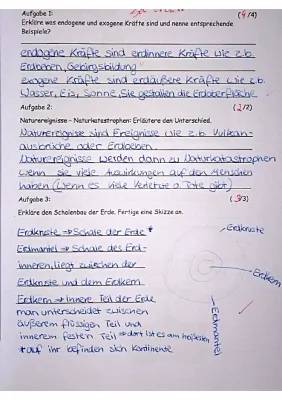 Aufgabe 1: (4/4)
Erkläre was endogene und exogene Kräfte sind und nenne entsprechende
Beispiele?
endogene Kräfte sind erdinnere Kräfte wie z.b.
Erdbeben, Gebirgsbildung
exogene Kräfte sind erdäußere Kräfte wie z.b.
Wasser, Eis, Sonne, Sie gestalten die Erdoberfläche
Aufgabe 2: (2/2)
Naturereignisse – Naturkatastrophen: Erläutere den Unterschied.
Naturereignisse sind Ereignisse wie z.b. Vulkan-
ausbrüche oder Erdbeben.
Naturereignisse werden dann zu Naturkatastrophen
wenn sie viele Auswirkungen auf den Menschen
haben (Wenn es viele Verletzte o. Tote gibt)
Aufgabe 3: (3/3)
Erkläre den Schalenbau der Erde. Fertige eine Skizze an.
Erdkruste → Schale der Erde *
Erdmantel → Schale des Erd-
inneren, liegt zwischen der
Erdkruste und dem Erdkern
Erdkern → Innere Teil der Erde,
man unterscheidet zwischen
äußerem flüssigen Teil und
innerem festen Teil → dort ist es am heißesten
* auf ihr befinden sich Kontinente
Erdkruste
Erdkern
Erdmantel